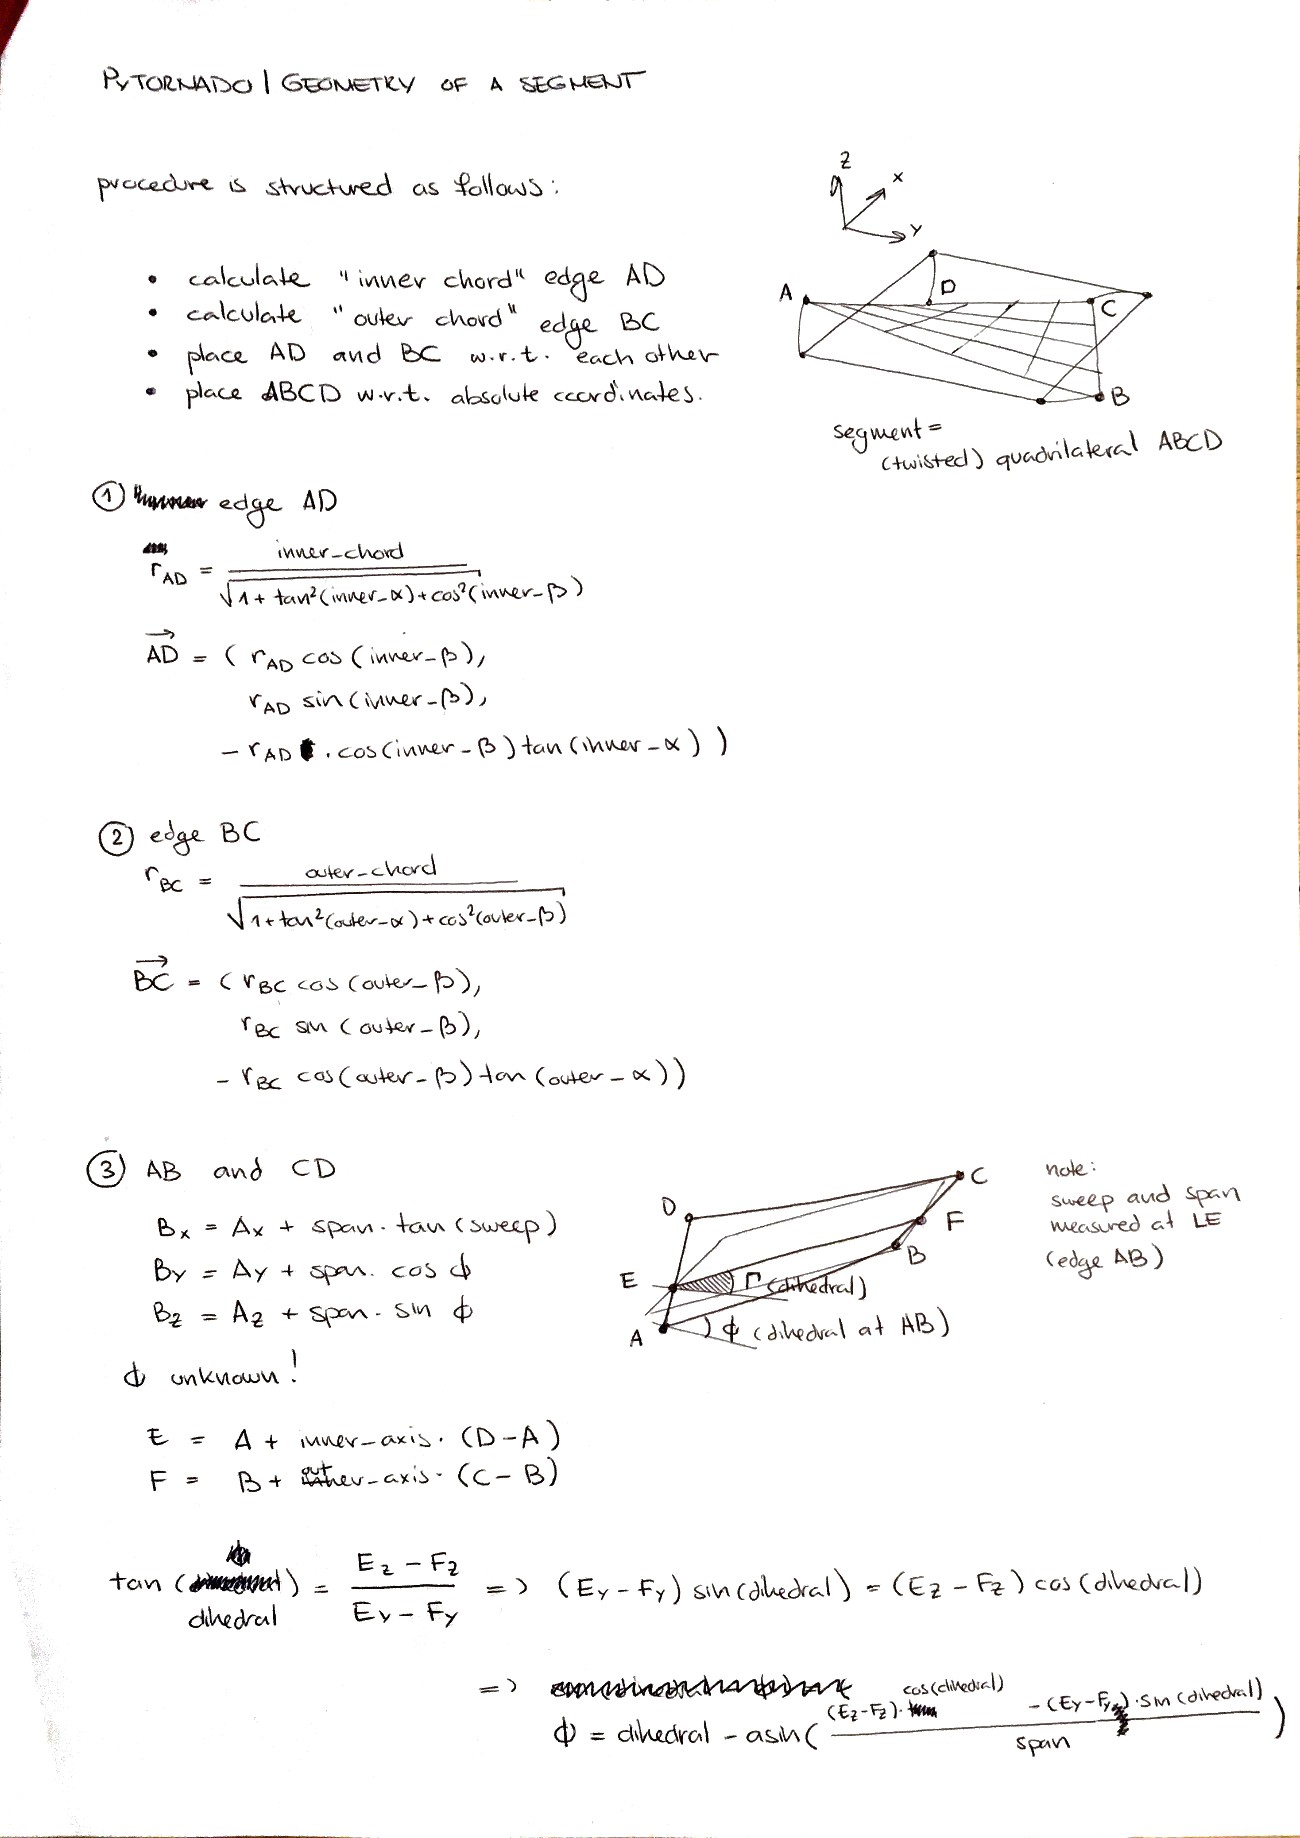 PYTORNADO | GEOMETRY OF A SEGMENT
procedure is structured as follows:
• calculate "inner chord" edge AD
• calculate "outer chord" edge BC
• place AD and BC w.r.t. each other
• place ABCD w.r.t. absolute coordinates.
Z
X
Y
A
D
C
B
segment =
(twisted) quadrilateral ABCD
① edge AD
r_AD = inner_chord / √(1 + tan²(inner_α) + cos²(inner_β))
→AD = ( r_AD cos (inner_β),
r_AD sin (inner_β),
- r_AD . cos(inner_β) tan(inner_α) )
② edge BC
r_BC = outer_chord / √(1+tan²(outer_α)+cos²(outer_β))
→BC = ( r_BC cos (outer_β),
r_BC sin (outer_β),
- r_BC cos(outer_β) tan(outer_α))
③ AB and CD
Bx = Ax + span · tan (sweep)
By = Ay + span · cos ϕ
Bz = Az + span · sin ϕ
ϕ unknown!
D
C
F
B
E
Γ (dihedral)
A
ϕ (dihedral at AB)
note:
sweep and span
measured at LE
(edge AB)
E = A + inner_axis · (D-A)
F = B + outer_axis · (C-B)
tan (dihedral) = (Ez - Fz) / (Ey - Fy) => (Ey - Fy) sin(dihedral) = (Ez - Fz) cos(dihedral)
=>
ϕ = dihedral - asin( ((Ez-Fz) · cos(dihedral) - (Ey-Fy) · sin(dihedral)) / span )